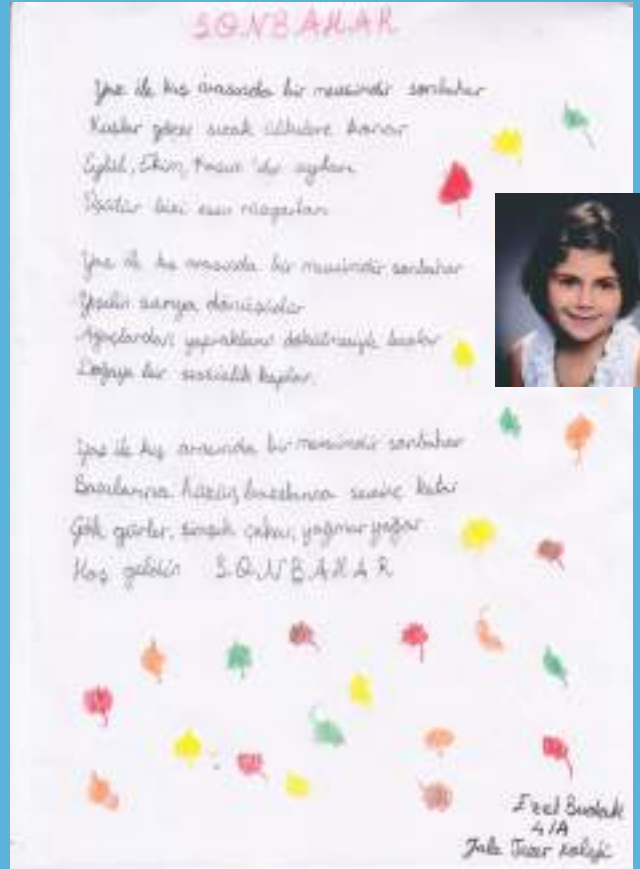 SONBAHAR
Yaz ile kış arasında bir mevsimdir sonbahar
Kuşlar göçer sıcak ülkelere konar
Eylül, Ekim, Kasım'dır ayları
Üşütür bizi esen rüzgarları
Yaz ile kış arasında bir mevsimdir sonbahar
Yeşilin sarıya dönüşüdür
Ağaçlardan yaprakların dökülmesiyle başlar
Doğayı bir sessizlik kaplar.
Yaz ile kış arasında bir mevsimdir sonbahar
Bazılarına hüzün, bazılarına sevinç katar
Gök gürler, şimşek çakar, yağmur yağar
Hoş geldin SONBAHAR
Ezel Budak
4/A
Jale Tezer Koleji